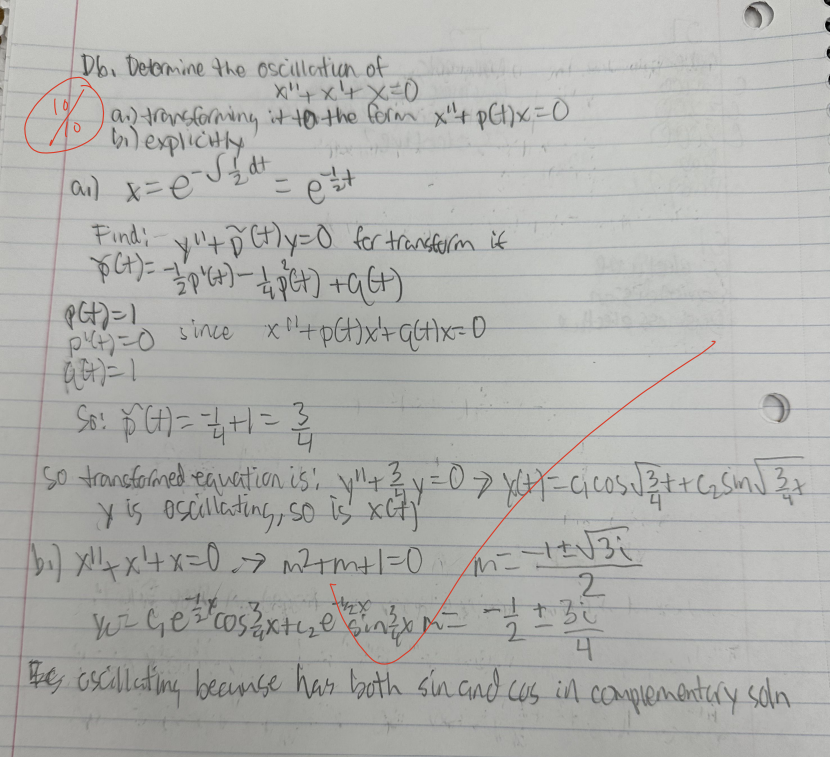 D6. Determine the oscillation of
x'' + x' + x = 0
10/10
a.) transforming it to the form x'' + p(t)x = 0
b.) explicitly
a.) x = e^{-∫1/2 dt} = e^{-1/2 t}
Find: y'' + p̃(t)y = 0 for transform if
p̃(t) = -1/2 p'(t) - 1/4 p²(t) + q(t)
p(t) = 1
p'(t) = 0 since x'' + p(t)x' + q(t)x = 0
q(t) = 1
So: p̃(t) = -1/4 + 1 = 3/4
So transformed equation is: y'' + 3/4 y = 0 → y(t) = c₁cos√(3/4) t + c₂ sin√(3/4) t
y is oscillating, so is x(t)
b.) x'' + x' + x = 0 → m² + m + 1 = 0 m = (-1 ± √3i)/2
y_c = c₁e^{-1/2 x} cos 3/4 x + c₂e^{-1/2 x} sin 3/4 x m = -1/2 ± 3i/4
oscillating because has both sin and cos in complementary soln